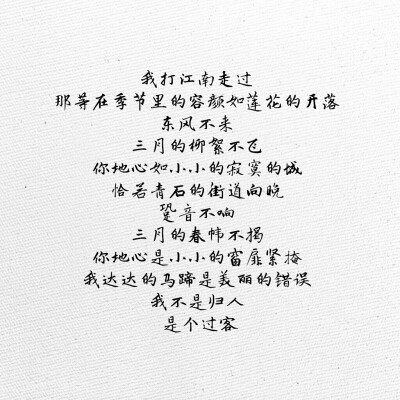 我打江南走过
那等在季节里的容颜如莲花的开落
东风不来
三月的柳絮不飞
你地心如小小的寂寞的城
恰若青石的街道向晚
跫音不响
三月的春帏不揭
你地心是小小的窗扉紧掩
我达达的马蹄是美丽的错误
我不是归人
是个过客